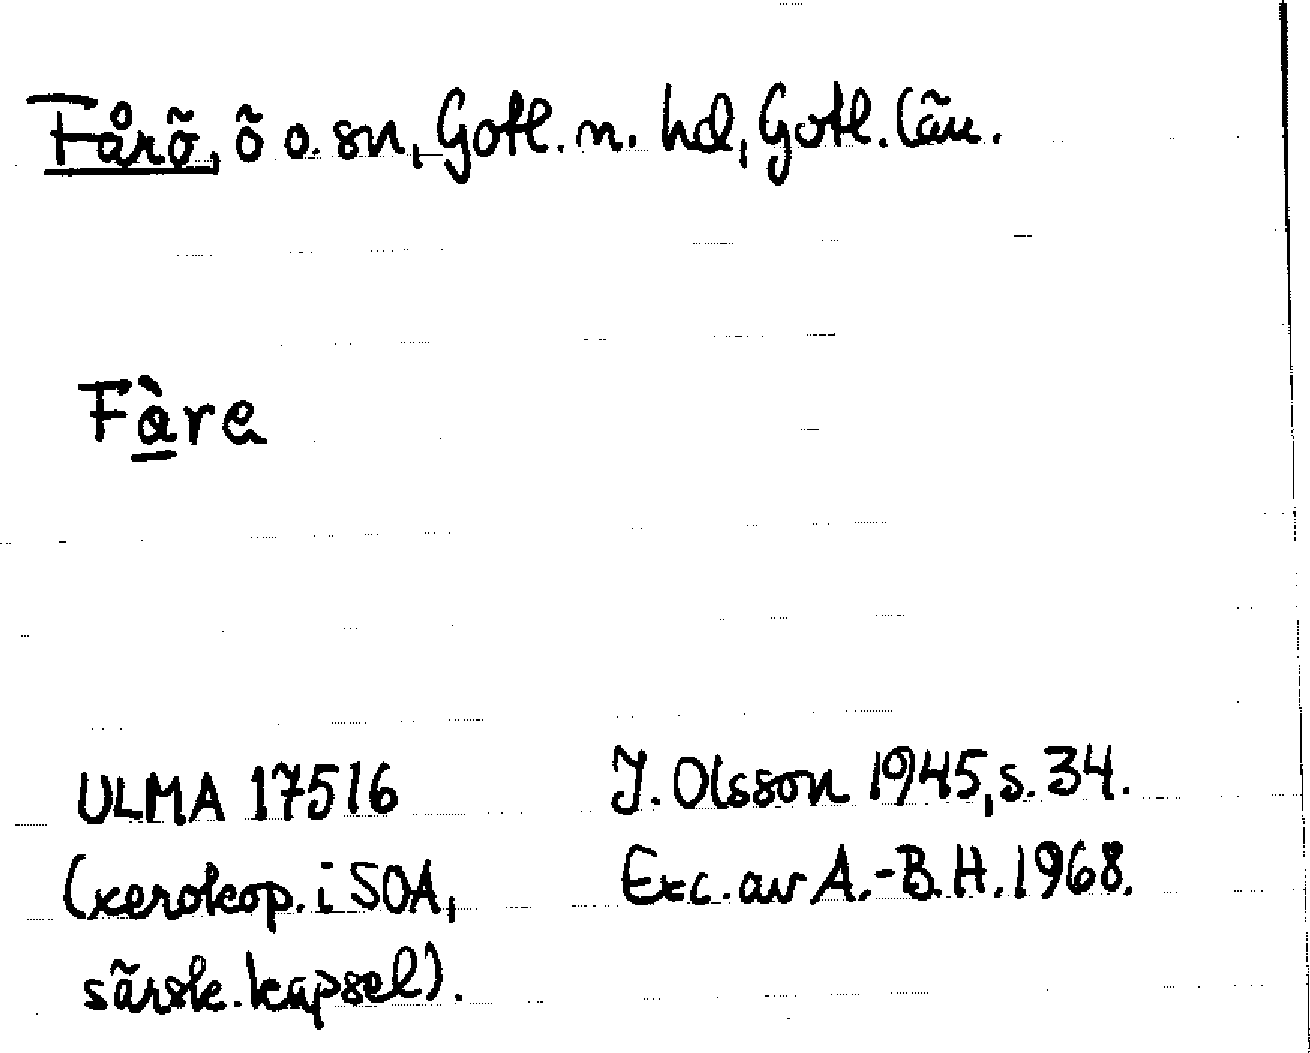 Fårö, ö o. sn, Gotl. n. hd, Gotl. län.
Fàre
ULMA 17516
(xerokop. i SOA,
särsk. kapsel).
J. Olsson 1945, s. 34.
Exc. av A.-B.H. 1968.